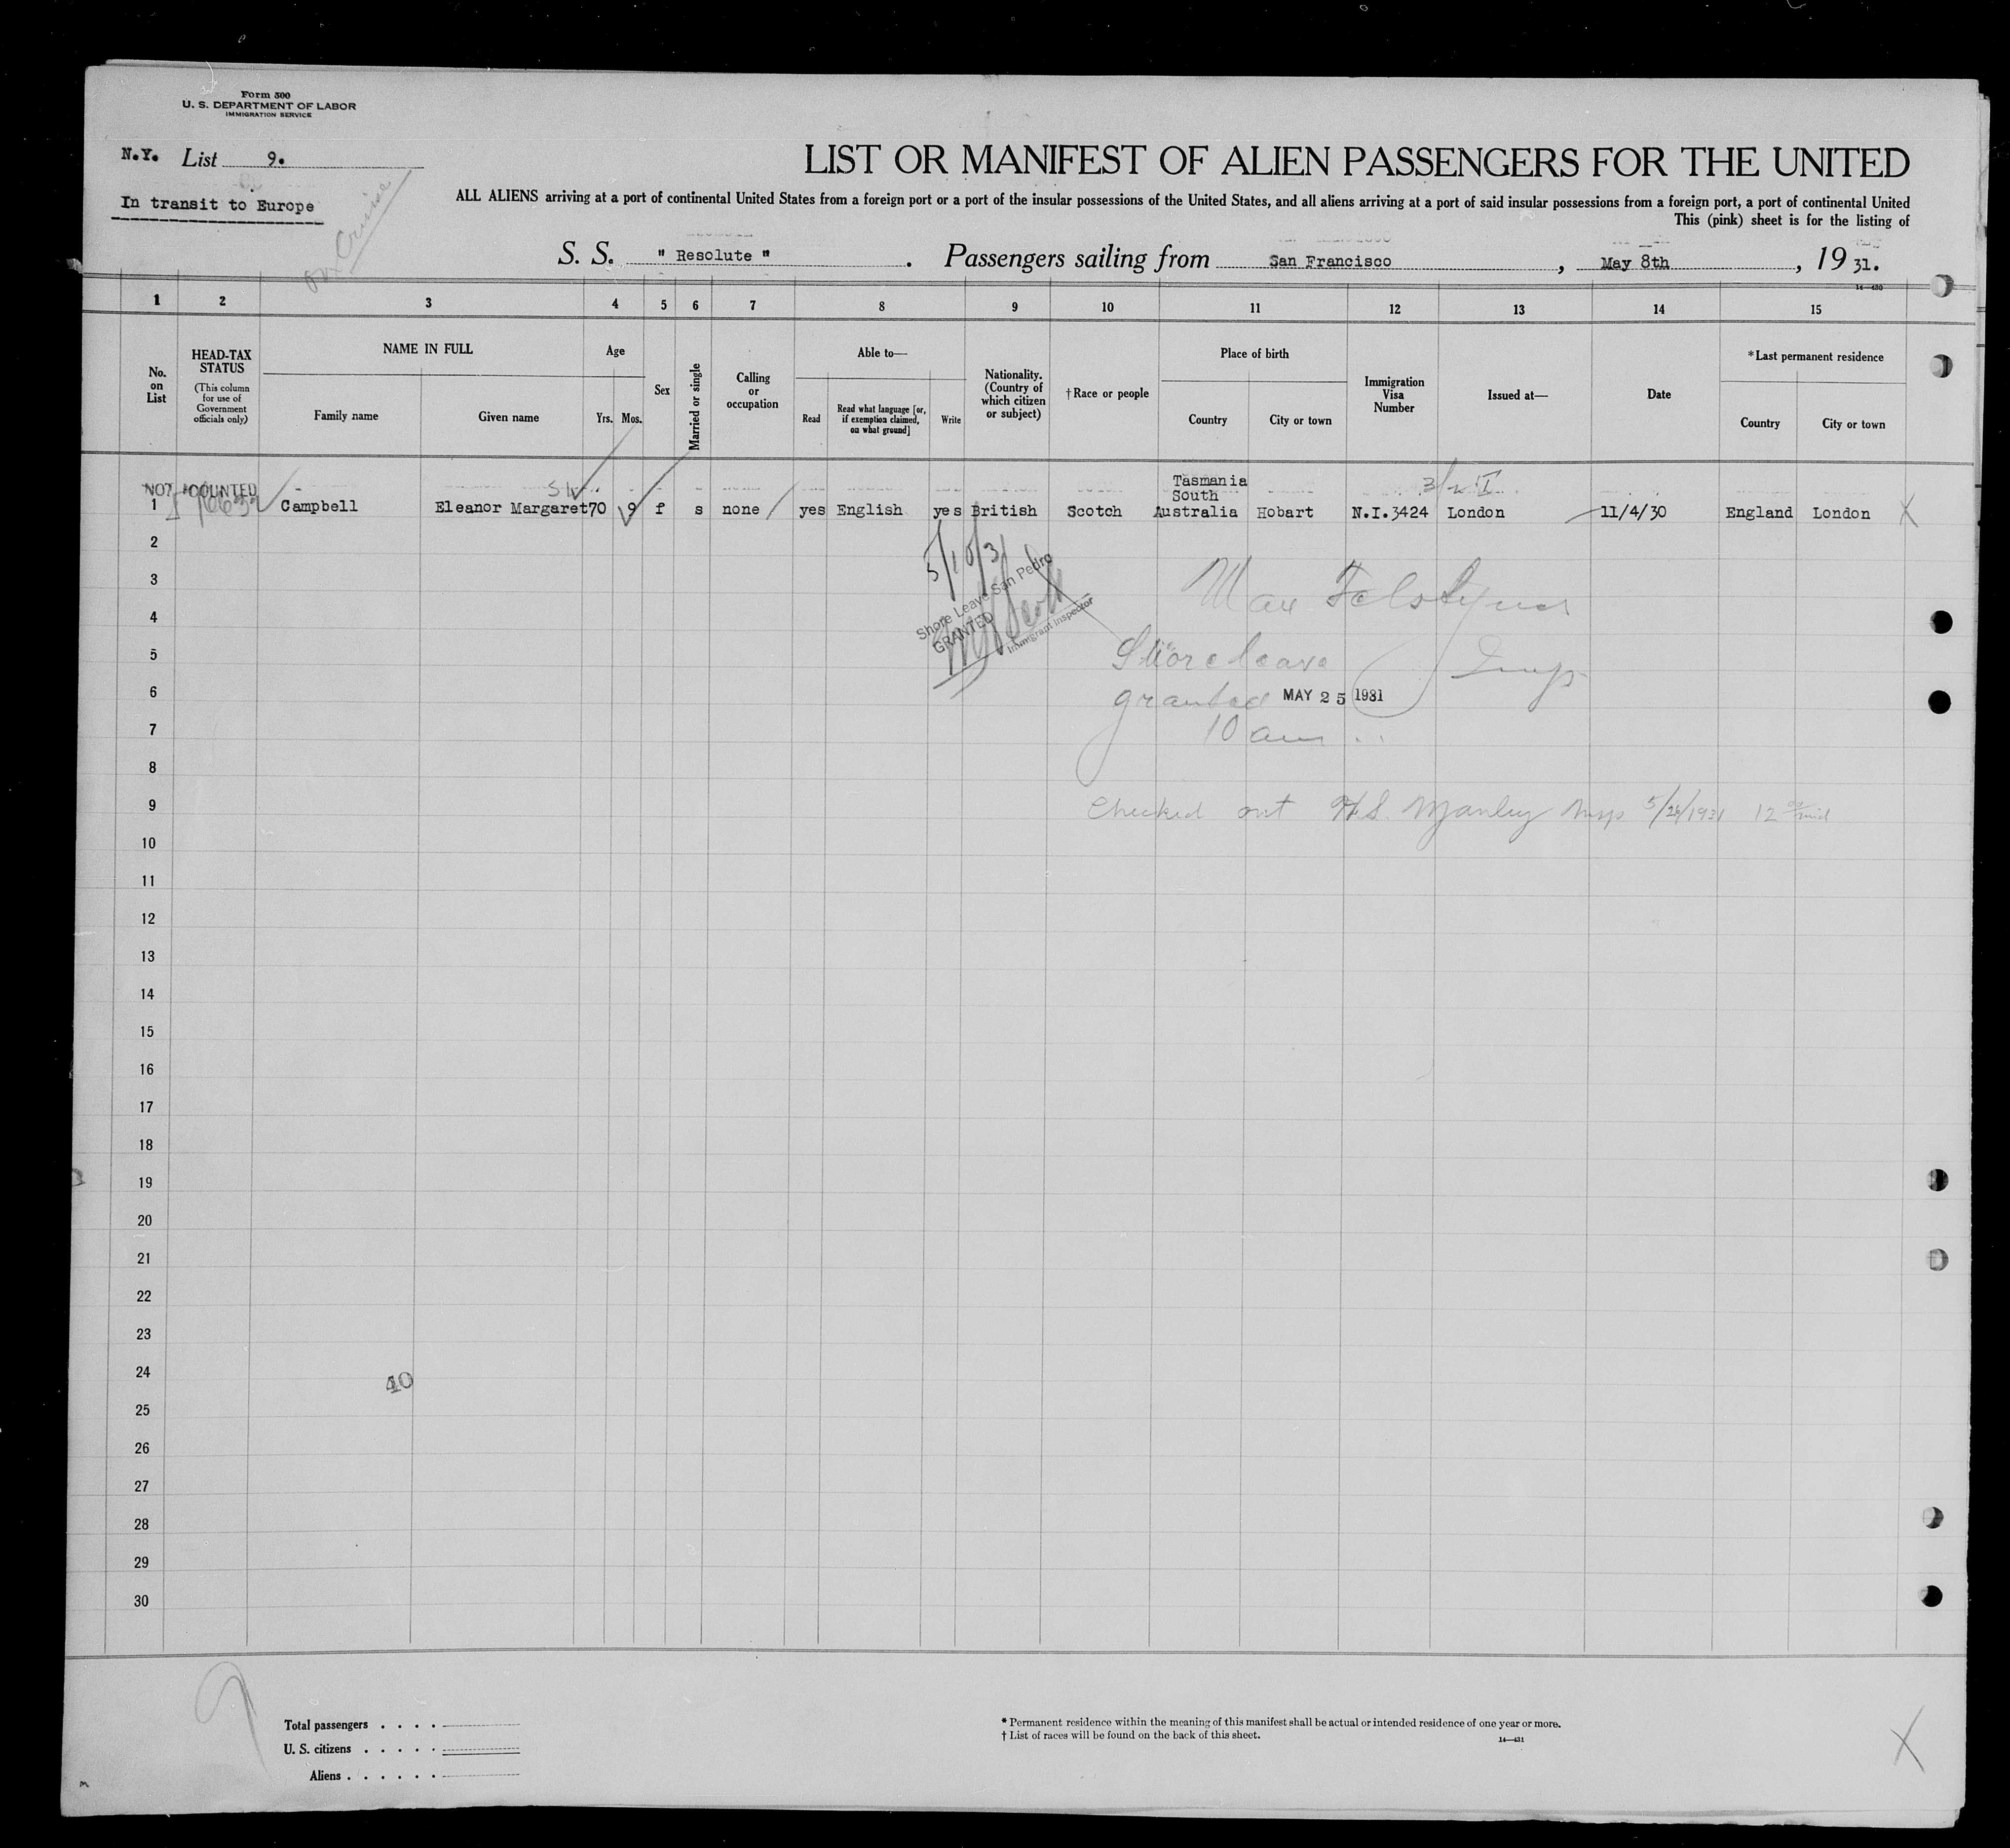 Form 500
U. S. DEPARTMENT OF LABOR
IMMIGRATION SERVICE
N.Y. List 9.
In transit to Europe
on Cruise
LIST OR MANIFEST OF ALIEN PASSENGERS FOR THE UNITED
ALL ALIENS arriving at a port of continental United States from a foreign port or a port of the insular possessions of the United States, and all aliens arriving at a port of said insular possessions from a foreign port, a port of continental United
This (pink) sheet is for the listing of
S. S. " Resolute " . Passengers sailing from San Francisco , May 8th , 19 31.
14—430
1 2 3 4 5 6 7 8 9 10 11 12 13 14 15
No. on List
HEAD-TAX STATUS
(This column for use of Government officials only)
NAME IN FULL
Family name Given name
Age
Yrs. Mos.
Sex
Married or single
Calling or occupation
Able to—
Read
Read what language [or, if exemption claimed, on what ground]
Write
Nationality. (Country of which citizen or subject)
† Race or people
Place of birth
Country City or town
Immigration Visa Number
Issued at—
Date
* Last permanent residence
Country City or town
NOT COUNTED
3/2 I
Tasmania
South
1 Campbell Eleanor Margaret 70 9 f s none yes English yes British Scotch Australia Hobart N.I.3424 London 11/4/30 England London X
2
3
4
5
6
7
8
9
10
11
12
13
14
15
16
17
18
19
20
21
22
23
24
25
26
27
28
29
30
5/10/31
Shore Leave San Pedro
GRANTED
Immigrant Inspector
Max
Shore leave
granted MAY 25 1931
10 am
Insp
Checked out H.S. Manley Insp 5/26/1931 12 00 mid
40
9
Total passengers . . . .
U. S. citizens . . . . .
Aliens . . . . . .
* Permanent residence within the meaning of this manifest shall be actual or intended residence of one year or more.
† List of races will be found on the back of this sheet.
14—431
X